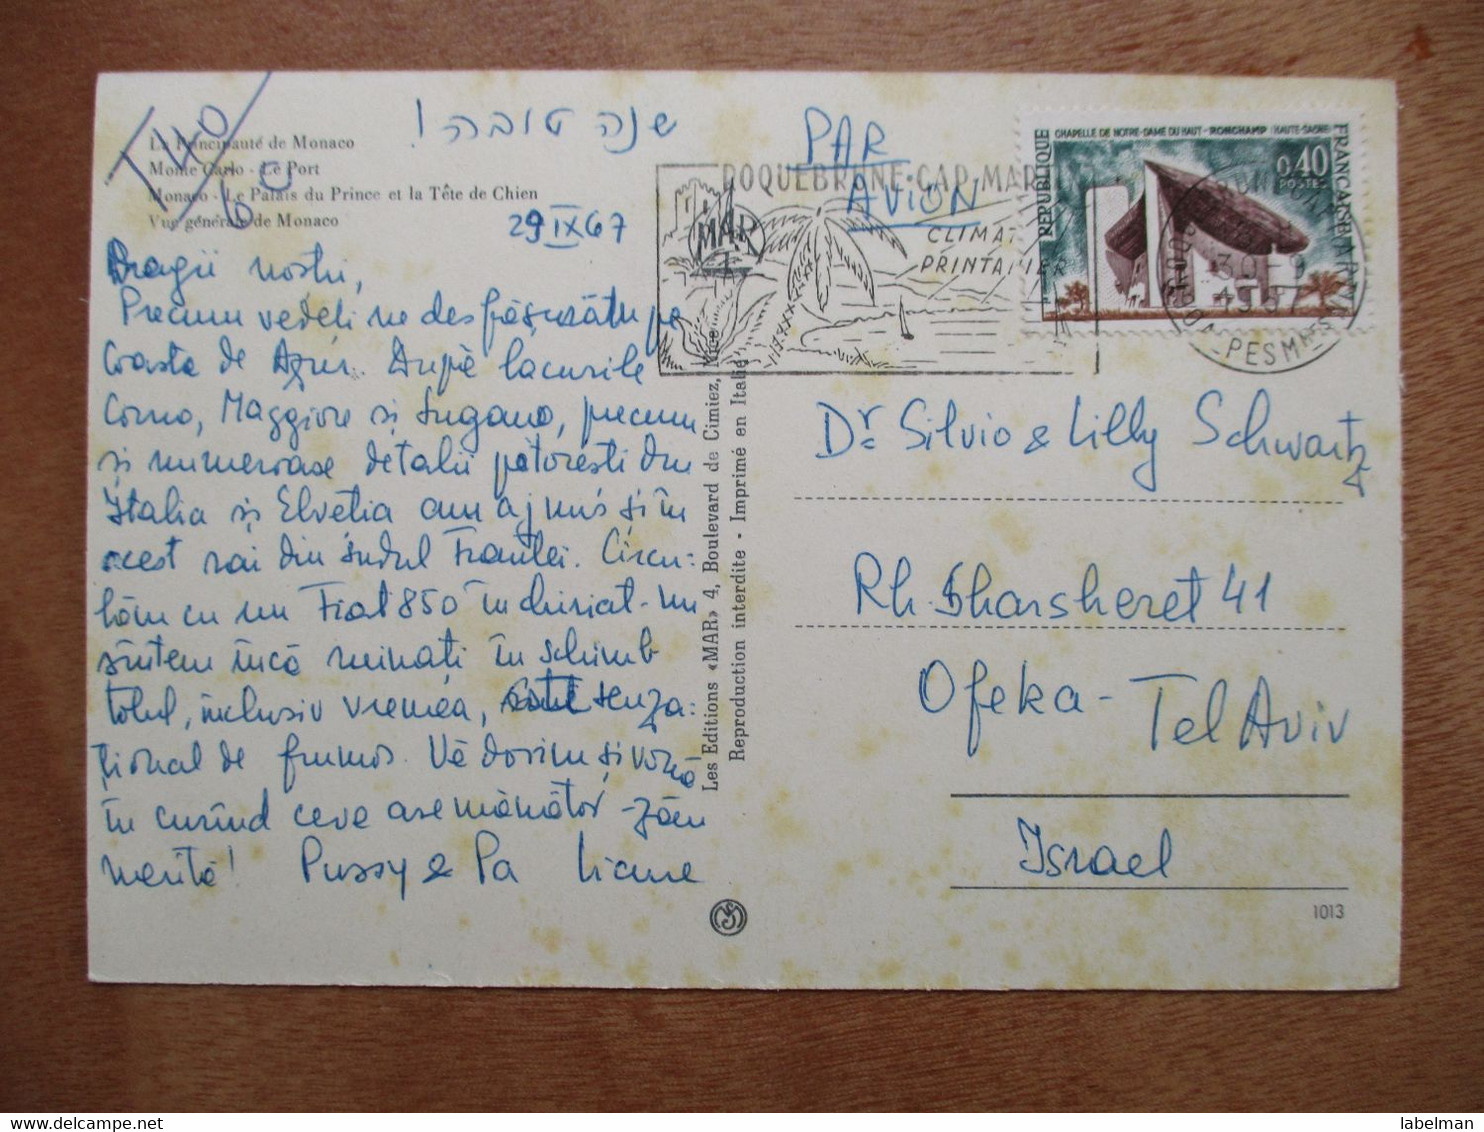 שנה טובה!
T 140/210
La Principauté de Monaco
Monte Carlo - Le Port
Monaco - Le Palais du Prince et la Tête de Chien
Vue générale de Monaco
29 IX 67
Dragii nostri,
Precum vedeți ne desfășurăm pe
Coasta de Azur. După lacurile
Como, Maggiore și Lugano, precum
și numeroase detalii pitorești din
Italia și Elveția am ajuns și în
acest rai din sudul Franței. Circu-
lăm cu un Fiat 850 închiriat. Nu
sîntem încă ruinați în schimb
totul, inclusiv vremea, este senza-
țional de frumos. Vă dorim și vouă
în curînd ceva asemănător
merită! Pussy & Pa Liane
Les Editions «MAR» 4, Boulevard de Cimiez, Nice
Reproduction interdite - Imprimé en Italie
PAR
AVION
ROQUEBRUNE-CAP-MAR
MAR
CLIMA
PRINTANIER
30 9
1967
ALPES MARES
CHAPELLE DE NOTRE-DAME DU HAUT - RONCHAMP (HAUTE-SAONE)
0,40
POSTES
REPUBLIQUE
FRANCAISE
Dr. Silvio & Lilly Schwartz
Rh. Sharsheret 41
Ofeka - Tel Aviv
Israel
1013
labelman
www.delcampe.net